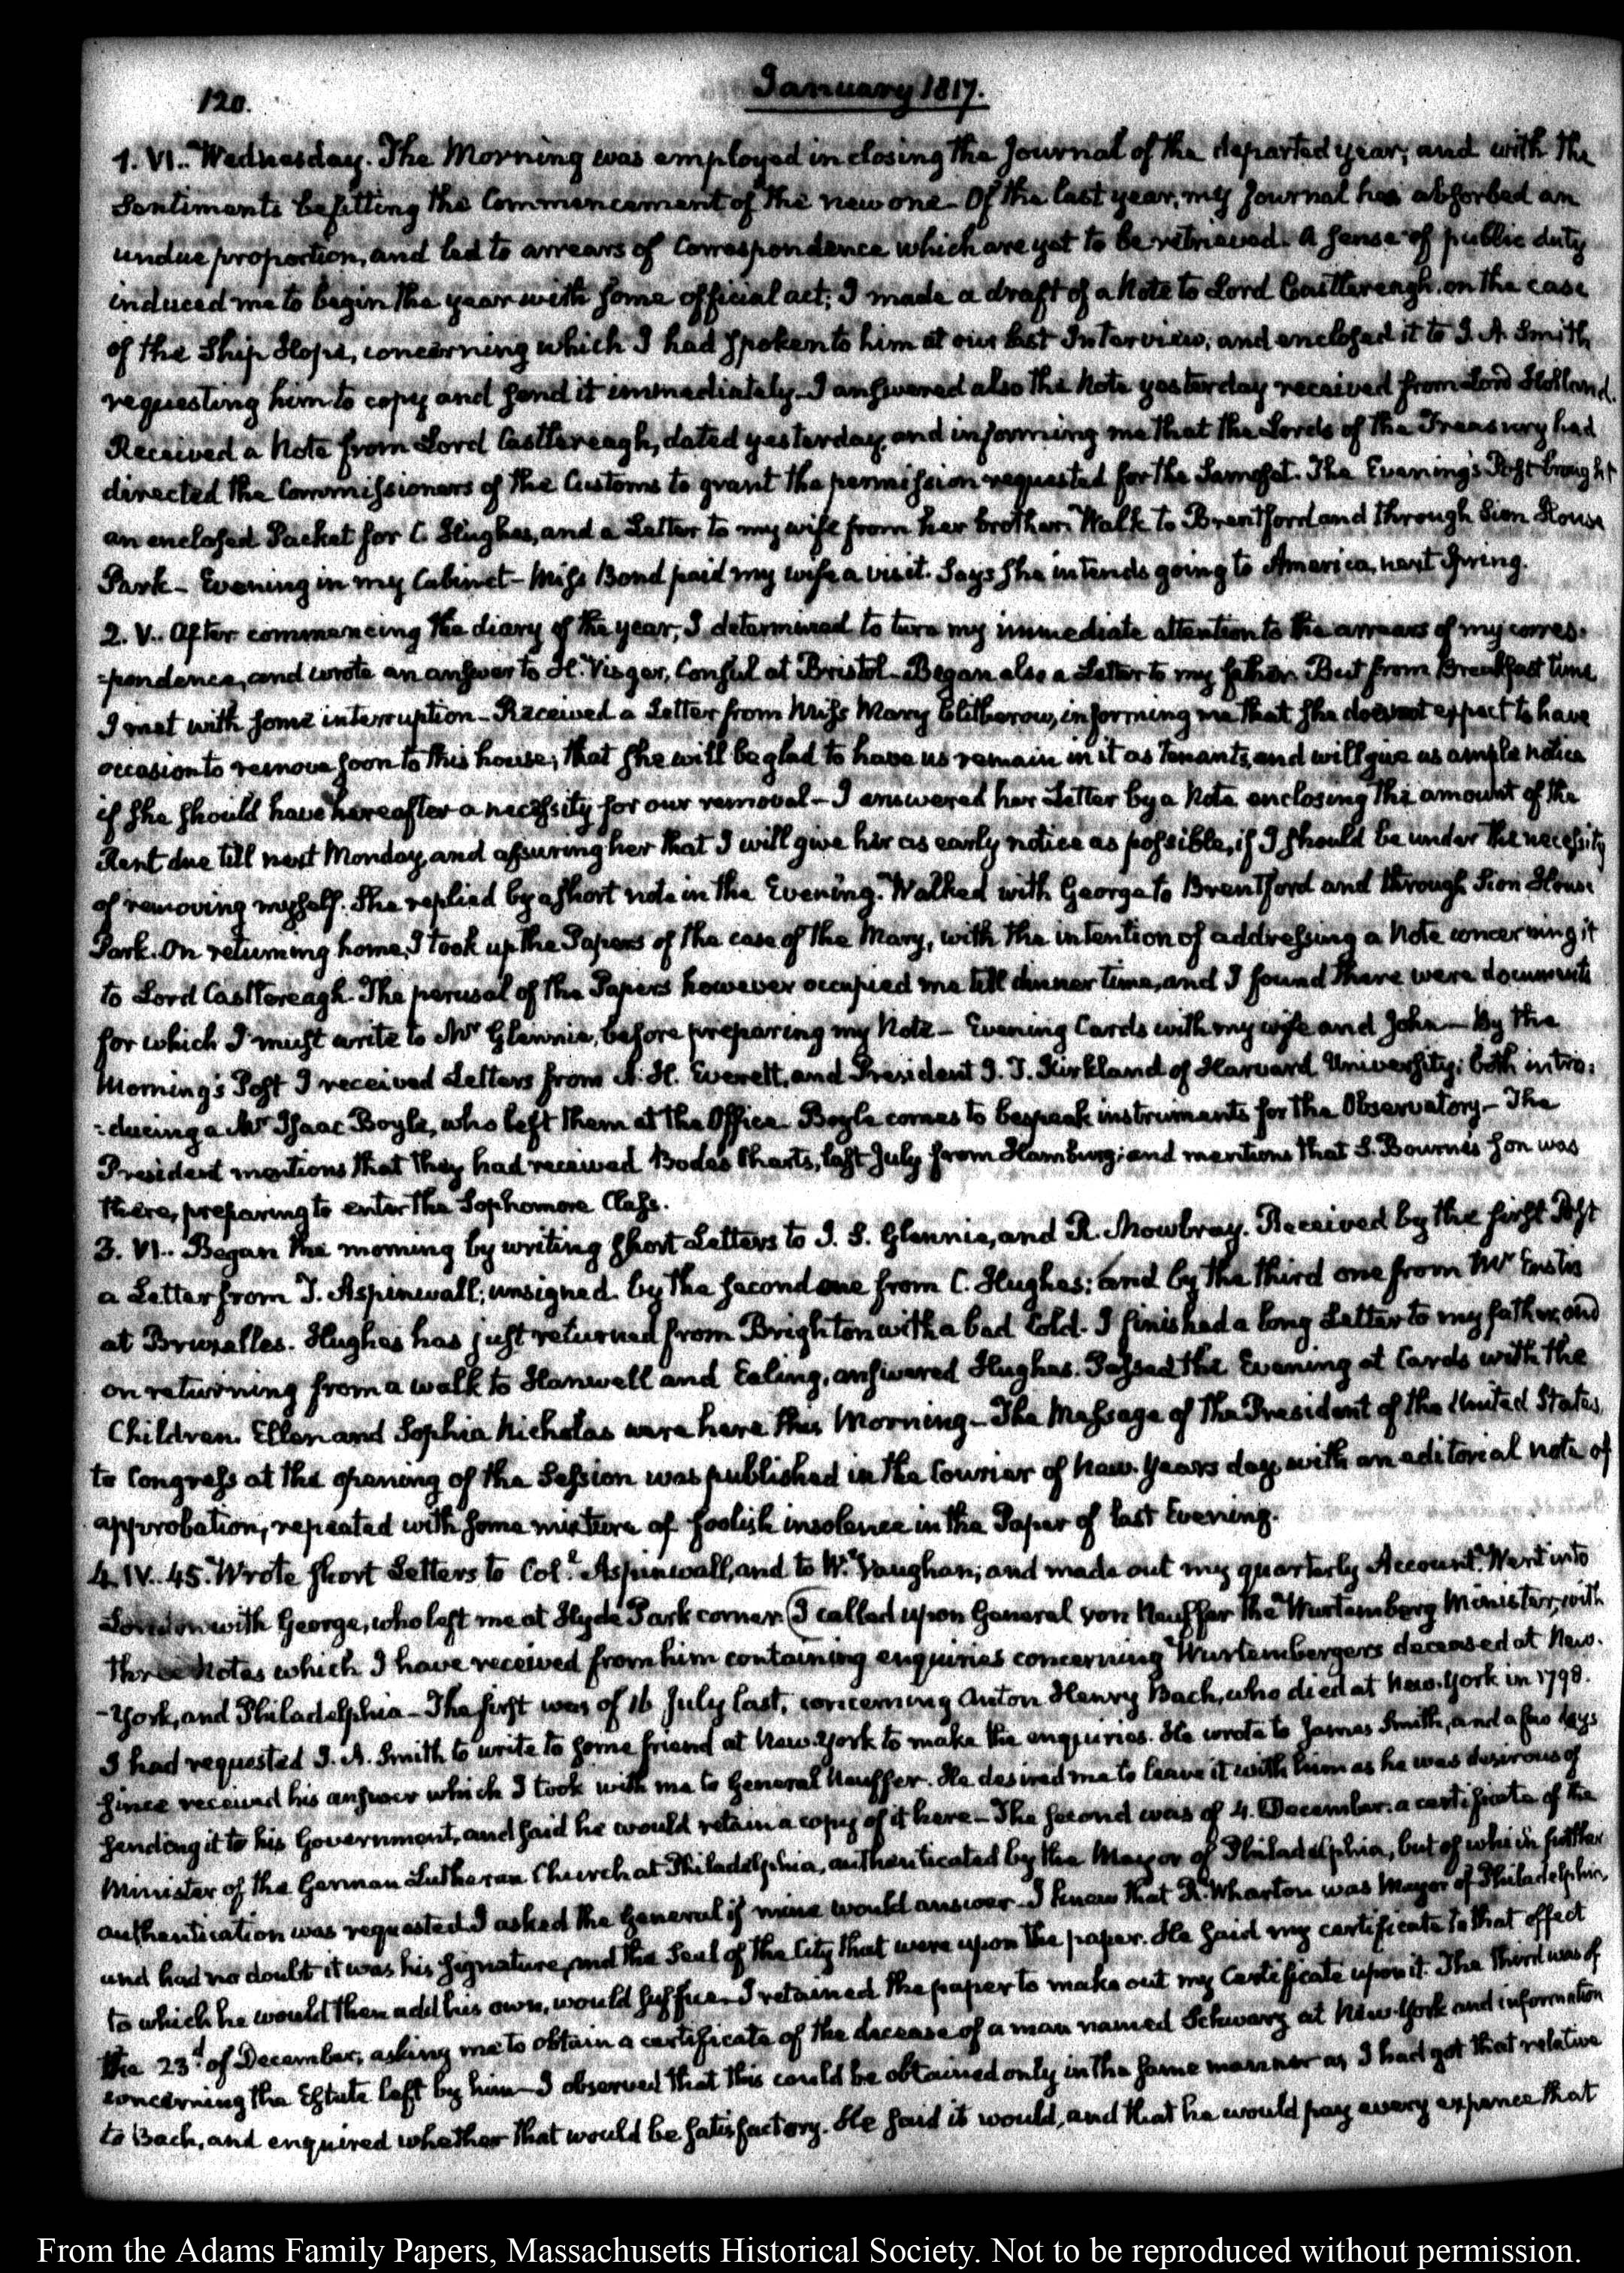 120.
January 1817.
1. VI.. Wednesday. The Morning was employed in closing the Journal of the departed year; and with the
Sentiments befitting the Commencement of the new one. Of the last year, my Journal has absorbed an
undue proportion, and led to arrears of Correspondence which are yet to be retrieved. A sense of public duty
induced me to begin the year with some official act; I made a draft of a Note to Lord Castlereagh, on the case
of the Ship Hope, concerning which I had spoken to him at our last Interview; and enclosed it to J. A. Smith
requesting him to copy and send it immediately. I answered also the Note yesterday received from Lord Holland.
Received a Note from Lord Castlereagh, dated yesterday, and informing me that the Lords of the Treasury had
directed the Commissioners of the Customs to grant the permission requested for the Somoset. The Evening's Post brought
an enclosed Packet for C. Hughes, and a Letter to my wife from her brother. Walk to Brentford and through Sion House
Park – Evening in my Cabinet – Miss Bond paid my wife a visit. Says she intends going to America, next Spring.
2. V.. After commencing the diary of the year, I determined to turn my immediate attention to the arrears of my corres-
-pondence, and wrote an answer to H. Visger, Consul at Bristol – Began also a Letter to my father. But from Breakfast time
I met with some interruption – Received a Letter from Miss Mary Clitherow, informing me that she does not expect to have
occasion to remove soon to this house; that she will be glad to have us remain in it as tenants, and will give us ample notice
if she should have hereafter a necessity for our removal – I answered her Letter by a Note enclosing the amount of the
Rent due till next Monday, and assuring her that I will give her as early notice as possible, if I should be under the necessity
of removing myself. She replied by a short note in the Evening. Walked with George to Brentford and through Sion House
Park. On returning home, I took up the Papers of the case of the Mary, with the intention of addressing a Note concerning it
to Lord Castlereagh. The perusal of the Papers however occupied me till dinner time, and I found there were documents
for which I must write to Mr Glennie, before preparing my Note – Evening Cards with my wife and John – By the
Morning's Post I received Letters from A. H. Everett, and President J. T. Kirkland of Harvard University; both intro:
:ducing a Mr Isaac Boyle, who left them at the Office. Boyle comes to bespeak instruments for the Observatory – The
President mentions that they had received Bode's Charts, last July from Hamburg; and mentions that S. Bourne's Son was
there, preparing to enter the Sophomore Class.
3. VI.. Began the morning by writing short Letters to J. S. Glennie, and R. Mowbray. Received by the first Post
a Letter from T. Aspinwall; unsigned. by the second one from C. Hughes; and by the third one from Mr Eustis
at Bruxelles. Hughes has just returned from Brighton with a bad Cold. I finished a long Letter to my father, and
on returning from a walk to Hanwell and Ealing, answered Hughes. Passed the Evening at Cards with the
Children. Ellen and Sophia Nicholas were here this Morning – The Message of the President of the United States,
to Congress at the opening of the Session was published in the Courier of New-Years day, with an editorial note of
approbation, repeated with some mixture of foolish insolence in the Paper of last Evening.
4. IV.. 45. Wrote short Letters to Col.l Aspinwall, and to W. Vaughan; and made out my quarterly Account. Went into
London with George, who left me at Hyde Park corner. (I called upon General von Neuffer the Wurtemberg Minister, with
three Notes which I have received from him containing enquiries concerning Wurtembergers deceased at New-
-York, and Philadelphia – The first was of 16 July last, concerning Anton Henry Bach, who died at New-York in 1798.
I had requested J. A. Smith to write to some friend at New-York to make the enquiries. He wrote to James Smith, and a few days
since received his answer which I took with me to General Neuffer. He desired me to leave it with him as he was desirous of
sending it to his Government, and said he would retain a copy of it here – The second was of 4. December: a certificate of the
Minister of the German Lutheran Church at Philadelphia, authenticated by the Mayor of Philadelphia, but of which further
authentication was requested. I asked the General if mine would answer. I knew that R. Wharton was Mayor of Philadelphia,
and had no doubt it was his signature, and the Seal of the City that were upon the paper. He said my certificate to that effect
to which he would then add his own, would suffice – I retained the paper to make out my Certificate upon it. The third was of
the 23d of December, asking me to obtain a certificate of the decease of a man named Schwarz at New-York and information
concerning the Estate left by him – I observed that this could be obtained only in the same manner as I had got that relative
to Bach, and enquired whether that would be satisfactory. He said it would, and that he would pay every expence that
From the Adams Family Papers, Massachusetts Historical Society. Not to be reproduced without permission.